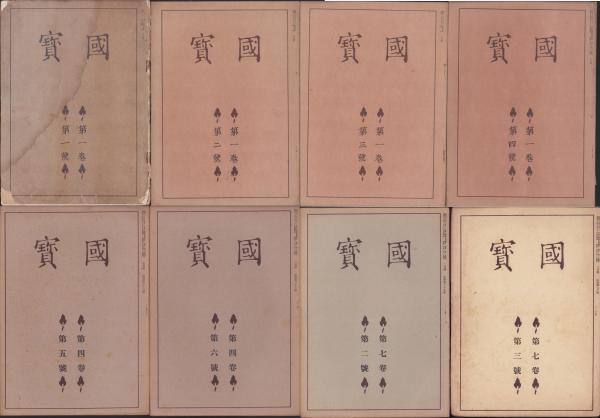 國寶
第一卷
第一號
國寶
第一卷
第二號
國寶
第一卷
第三號
國寶
第一卷
第四號
國寶
第四卷
第五號
國寶
第四卷
第六號
國寶
第七卷
第二號
國寶
第七卷
第三號